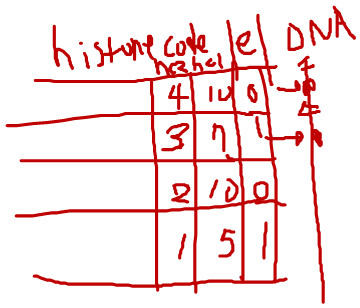 histone code e DNA
4 10 0
3 7 1
2 10 0
1 5 1